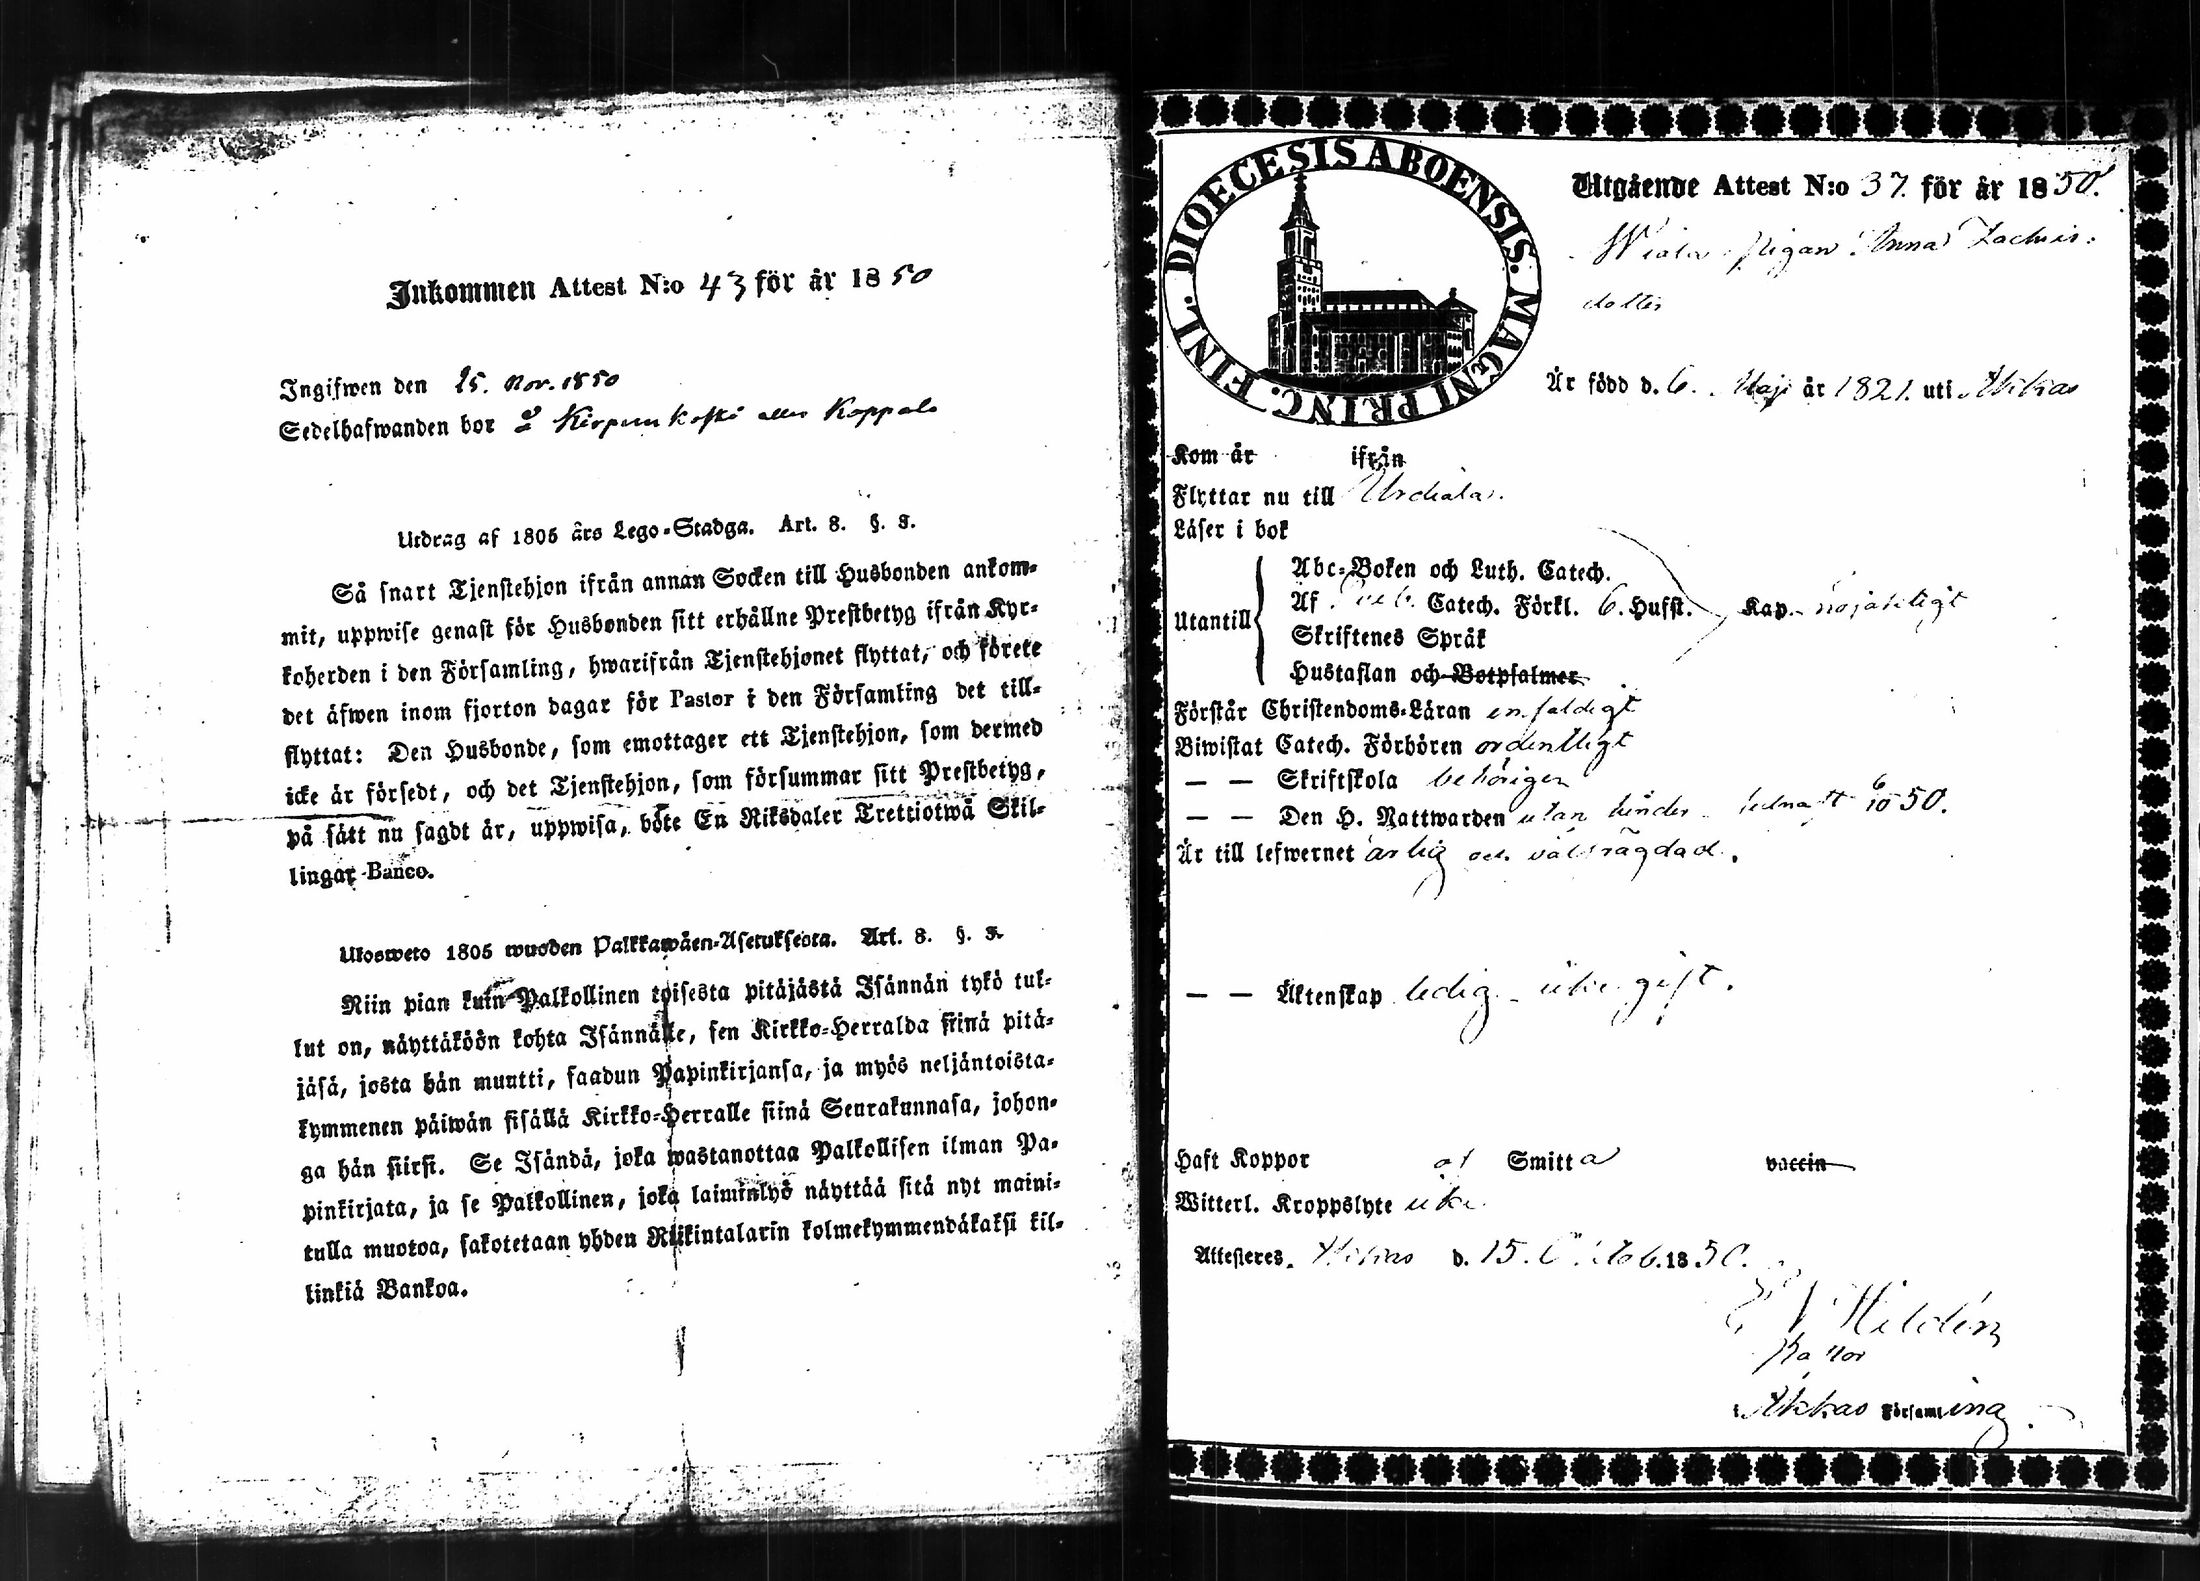 Inkommen Attest N:o 43 för år 1850
Ingifwen den 25. Nov. 1850
Sedelhafwanden bor å Kirpunkoski eller Koppala
Utdrag af 1805 års Lego-Stadga. Art. 8. §. 3.
Så snart Tjenstehjon ifrån annan Socken till Husbonden ankom-
mit, uppwise genast för Husbonden sitt erhållne Prestbetyg ifrån Kyr-
koherden i den Församling, hwarifrån Tjenstehjonet flyttat, och förete
det äfwen inom fjorton dagar för Pastor i den Församling det till-
flyttat: Den Husbonde, som emottager ett Tjenstehjon, som dermed
icke är försedt, och det Tjenstehjon, som försummar sitt Prestbetyg,
på sätt nu sagdt är, uppwisa, böte En Riksdaler Trettiotwå Skil-
lingar Banco.
Ulosweto 1805 wuoden Palkkawäen-Asetuksesta. Art. 8. §. 3.
Niin pian kuin Palkollinen toisesta pitäjästä Isännän tykö tul-
lut on, näyttäköön kohta Isännälle, sen Kirkko-Herralda siinä pitä-
jäsä, josta hän muutti, saadun Papinkirjansa, ja myös neljäntoista-
kymmenen päiwän sisällä Kirkko-Herralle siinä Seurakunnasa, johon-
ga hän siirsi. Se Isändä, joka wastanottaa Palkollisen ilman Pa-
pinkirjata, ja se Palkollinen, joka laiminlyö näyttää sitä nyt maini-
tulla muotoa, sakotetaan yhden Riikintalarin kolmekymmendäkaksi kil-
linkiä Bankoa.
DIOECESIS ABOENSIS. MAGNI PRINC. FINL.
Utgående Attest N:o 37. för år 1850.
Wiala Pigan Anna Zachris-
dotter
Är född d. 6. Maji år 1821. uti Akkas
Kom år ifrån
Flyttar nu till Urdiala.
Läser i bok
Abc-Boken och Luth. Catech.
Utantill Af Catech. Förkl. 6. Hufst. Kap. nöjaktigt
Skriftenes Språk
Hustaflan och Botpsalmer
Förstår Christendoms-Läran enfaldigt
Biwistat Catech. Förhören ordentligt
— — Skriftskola behörigen
— — Den H. Nattwarden utan hinder 6/10 50.
Är till lefwernet ärlig och välfrägdad.
— — Äktenskap ledig icke gift.
Haft Koppor af Smitta vaccin
Witterl. Kroppslyte icke
Attesteres. Akkas d. 15. 1850.
Hildén
Pastor
i Akkas Församling